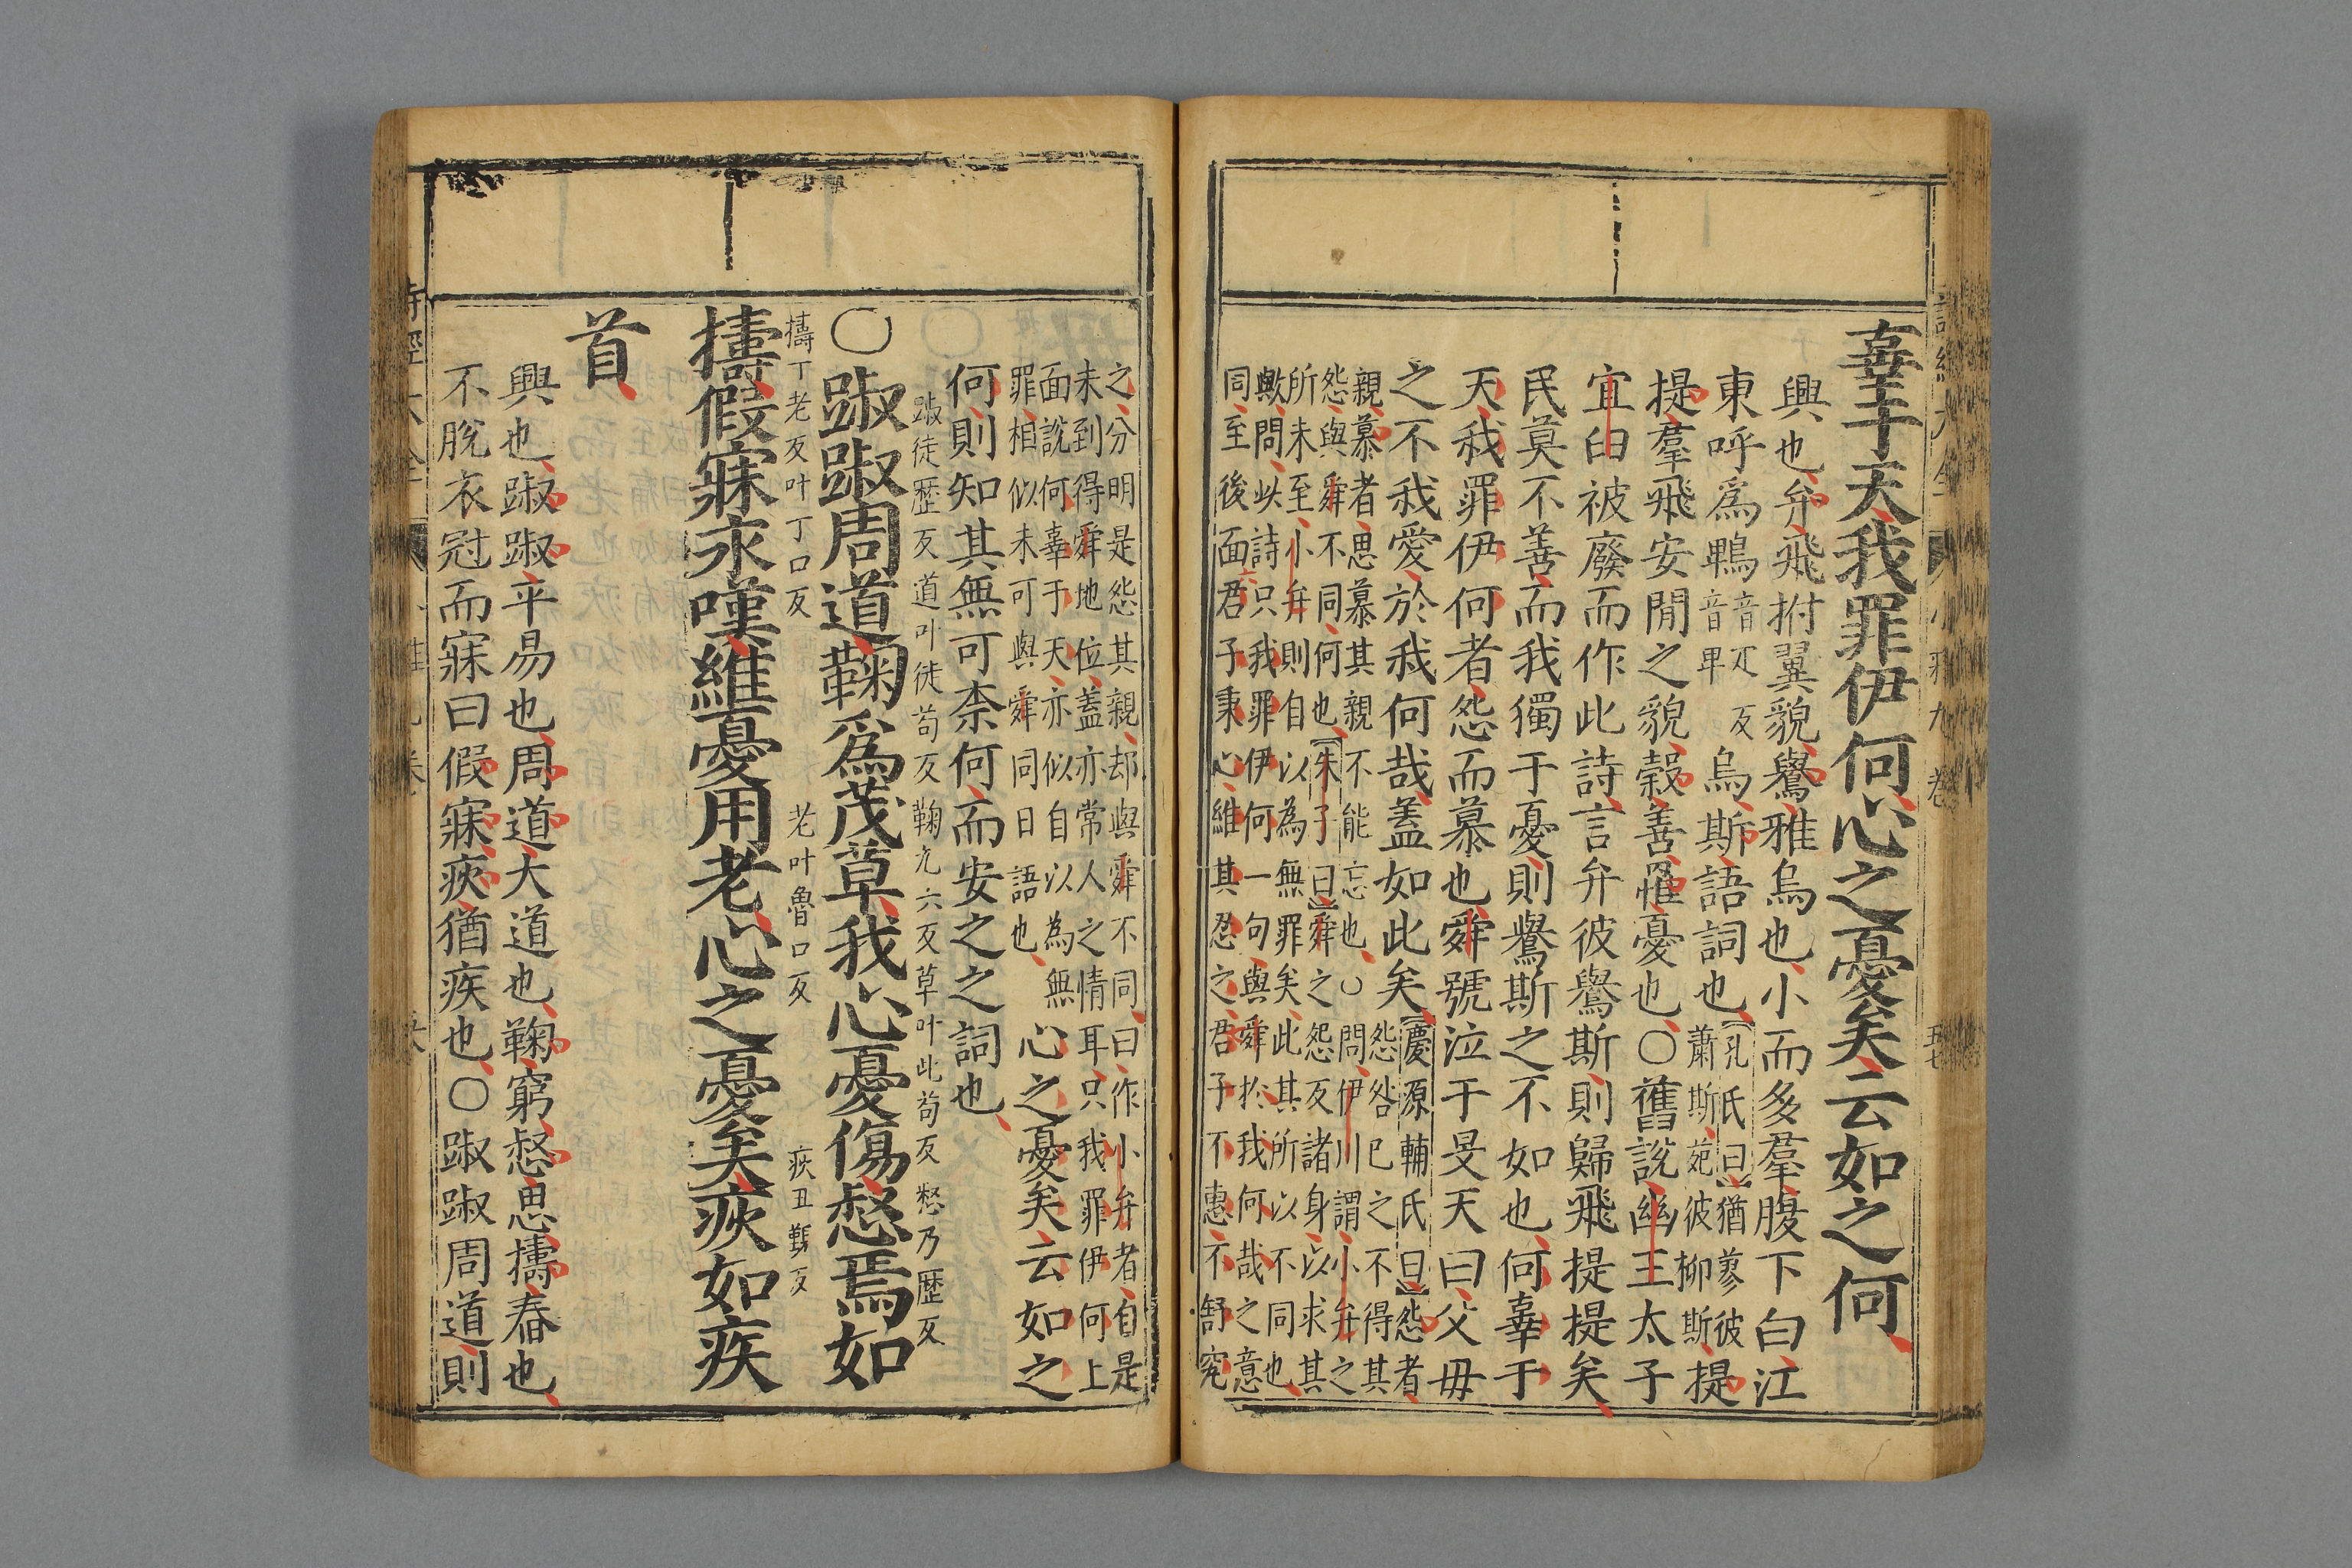 辜于天我罪伊何心之憂矣云如之何
興也弁飛拊翼貌鸒雅烏也小而多羣腹下白江
東呼爲鵯音疋反音卑烏斯語詞也孔氏曰猶蓼彼蕭斯菀彼柳斯提
提羣飛安閒之貌穀善罹憂也○舊說幽王太子
宜臼被廢而作此詩言弁彼鸒斯則歸飛提提矣
民莫不善而我獨于憂則鸒斯之不如也何辜于
天我罪伊何者怨而慕也舜號泣于旻天曰父母
之不我愛於我何哉蓋如此矣慶源輔氏曰怨者
怨咎己之不得其
親慕者思慕其親不能忘也○問伊川謂小弁之
怨與舜不同何也朱子曰舜之怨反諸身以求其
所未至小弁則自以為無罪矣此其所以不同也
歟問此詩只我罪伊何一句與舜於我何哉之意
同至後面君子秉心維其忍之君子不惠不舒究
之分明是怨其親却與舜不同曰作小弁者自是
未到得舜地位蓋亦常人之情耳只我罪伊何上
面說何辜于天亦似自以為無
罪相似未可與舜同日語也心之憂矣云如之
何則知其無可柰何而安之之詞也
踧徒歷反道叶徒苟反鞠九六反草叶此苟反惄乃歷反
○踧踧周道鞠爲茂草我心憂傷惄焉如
擣丁老反叶丁口反老叶魯口反疢丑覲反
擣假寐永嘆維憂用老心之憂矣疢如疾
首
興也踧踧平易也周道大道也鞠窮惄思擣舂也
不脫衣冠而寐曰假寐疢猶疾也○踧踧周道則